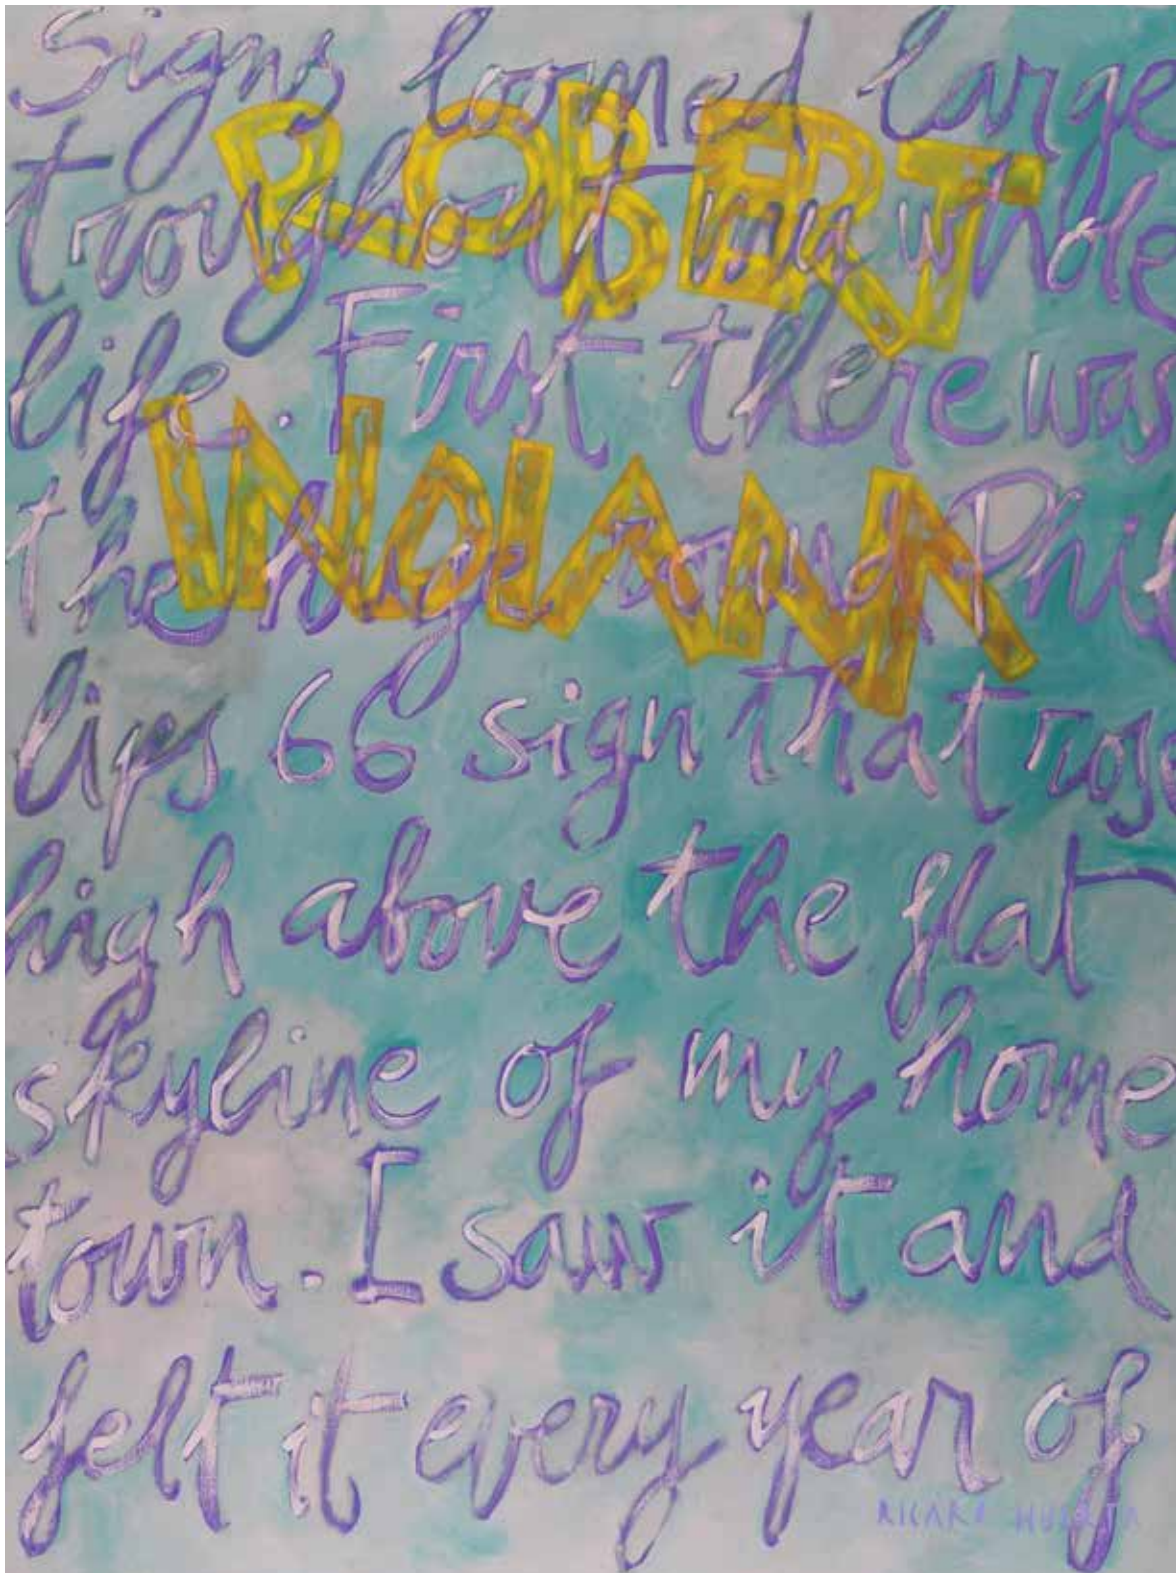 Signs loomed large
ROBERT
troughout my whole
life. First there was
INDIANA
the huge round Phil
lips 66 sign that rose
high above the flat
skyline of my home
town. I saw it and
felt it every year of
RICARD HUERTA